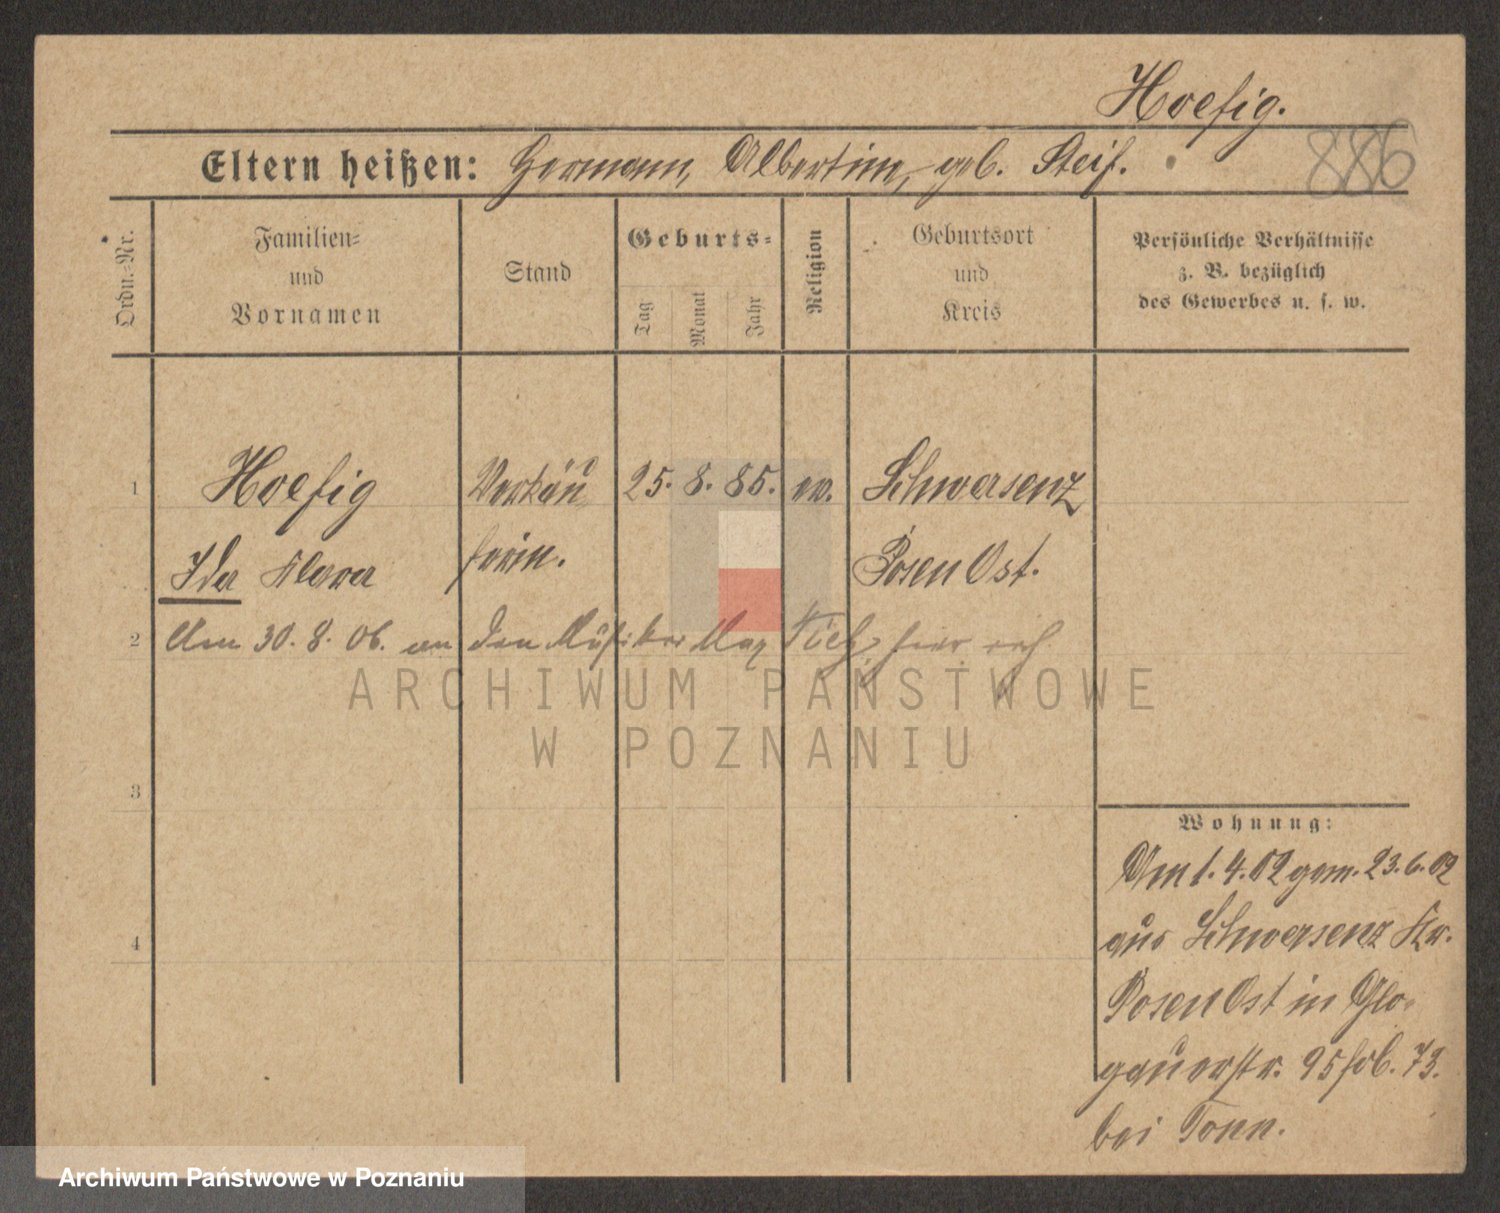 Hoefig.
886
Eltern heißen: Hermann, Albertine, geb. Steif.
Ordn.-Nr.
Familien-
und
Vornamen
Stand
Geburts-
Tag
Monat
Jahr
Religion
Geburtsort
und
Kreis
Persönliche Verhältnisse
z. B. bezüglich
des Gewerbes u. s. w.
1 Hoefig Verkäu 25. 8. 85. ev. Schwersenz
Ida Klara ferin. Posen Ost.
2 Am 30. 8. 06. an den Musiker Max hier verh
ARCHIWUM PAŃSTWOWE
W POZNANIU
3
Wohnung:
Am 1. 4. 02 gem. 23. 6. 02
aus Schwersenz Kr.
4
Posen Ost in Glo-
gauerstr. 95 73.
bei Tonn.
Archiwum Państwowe w Poznaniu